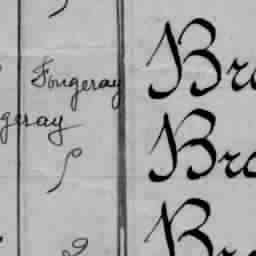 Fougeray Bro
geray Bro
Bro